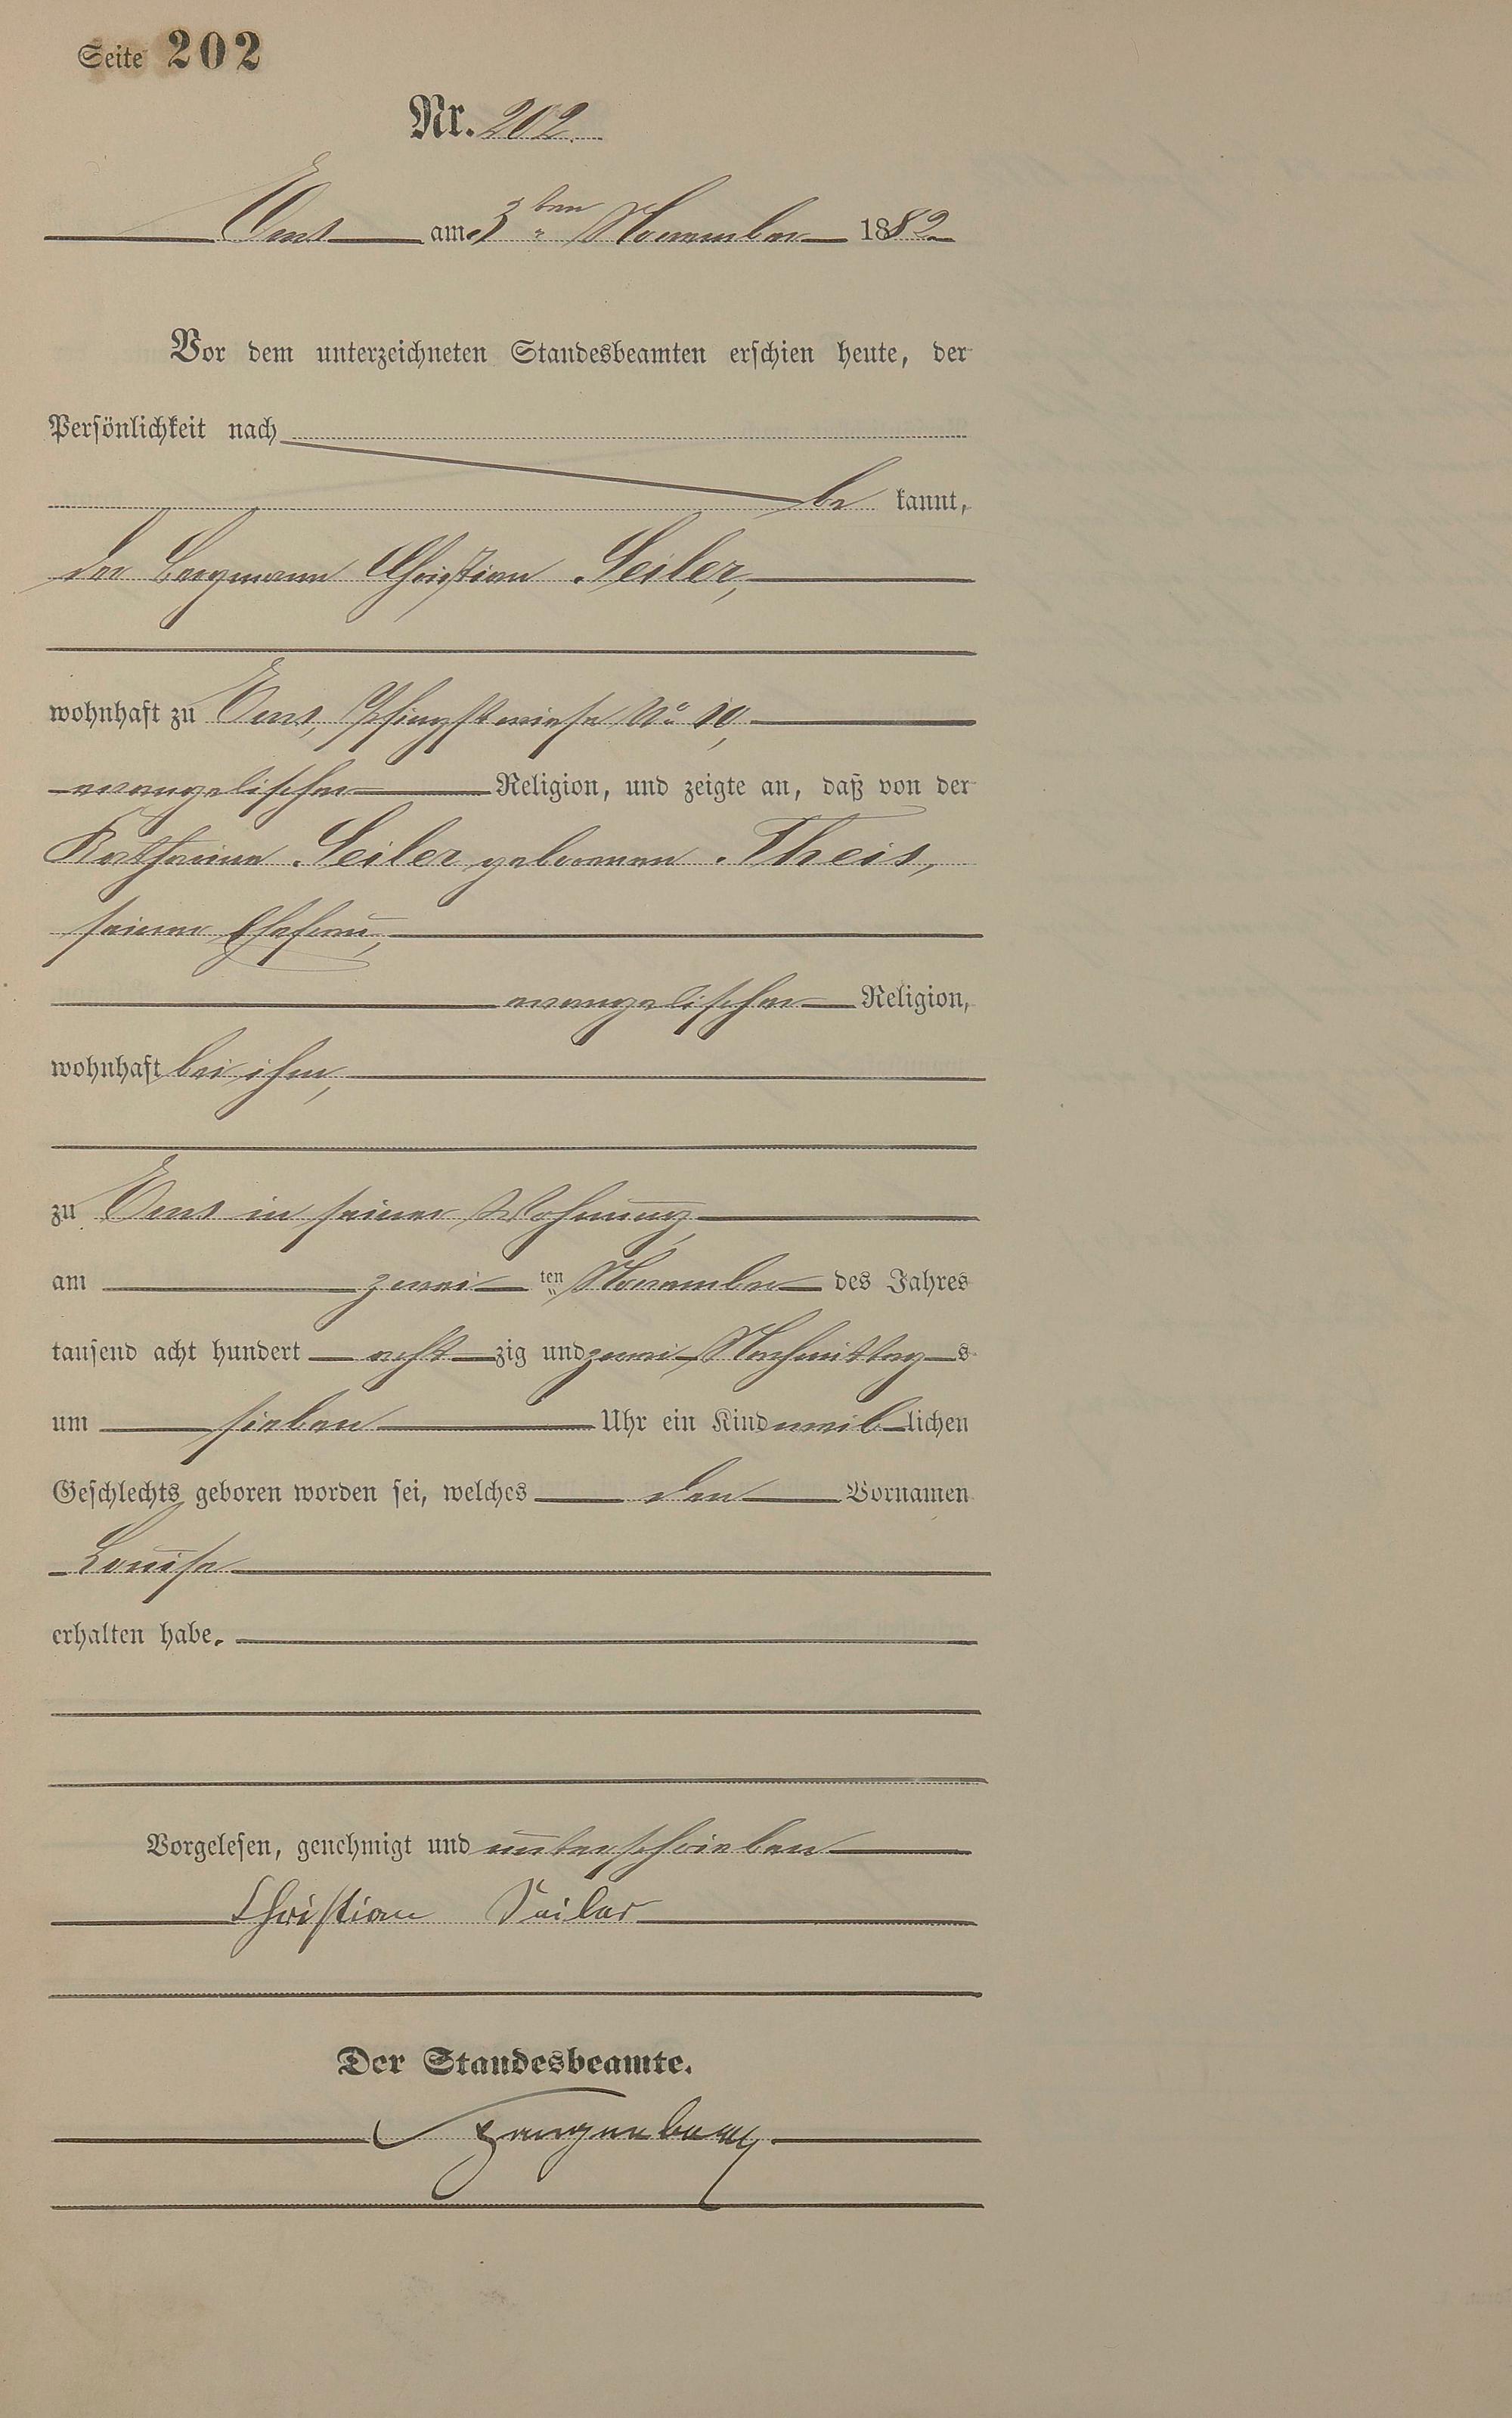 Seite 202
Nr. 202.
Ems am 3ten November 1882
Vor dem unterzeichneten Standesbeamten erschien heute, der
Persönlichkeit nach
be kannt,
der Bergmann Christian Seiler,
wohnhaft zu Ems, Pfingstwiese No 10,
evangelischer Religion, und zeigte an, daß von der
Katharina Seiler geborenen Theis,
seiner Ehefrau,
evangelischer Religion,
wohnhaft bei ihm,
zu Ems in seiner Wohnung,
am zwei ten November des Jahres
tausend acht hundert acht zig und zwei Nachmittag s
um sieben Uhr ein Kind weib lichen
Geschlechts geboren worden sei, welches den Vornamen
Louise
erhalten habe.
Vorgelesen, genehmigt und unterschrieben
Christian Seiler
Der Standesbeamte.